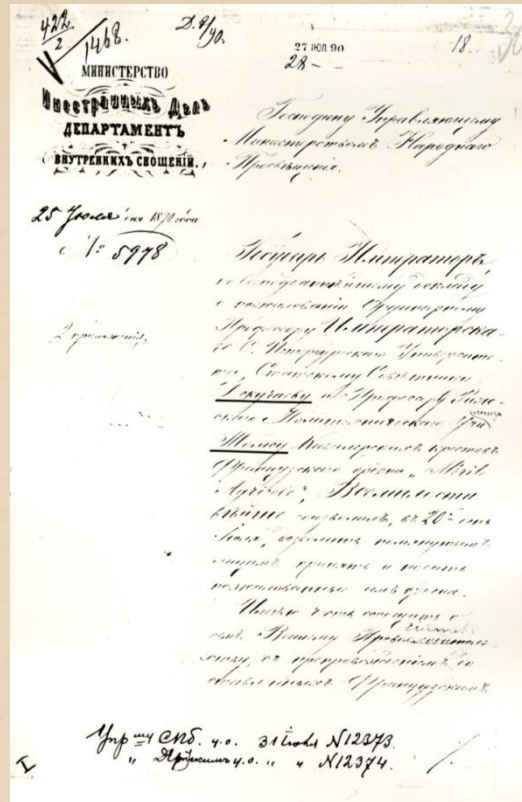 422
2
1468.
Д. 9/90.
27 ІЮЛ. 90
28 -
18.
МИНИСТЕРСТВО
Иностранныхъ Дѣлъ
ДЕПАРТАМЕНТЪ
ВНУТРЕННИХЪ СНОШЕНІЙ.
25 Іюля дня 1890 года
№ 5978
2 приложенія.
Господину Управляющему
Министерствомъ Народнаго
Просвѣщенія.
Государь Императоръ,
по всеподданнѣйшему докладу
о пожалованіи Ординарному
Профессору Императорска-
го С. Петербургскаго Университе-
та, Статскому Совѣтнику
Докучаеву и Профессору Риж-
скаго Политехническаго Учи
лища
Томсу Кавалерскихъ крестовъ
Французскаго ордена „Mérite
Agricole“, Всемилости
вѣйше соизволилъ, въ 20й день
Іюля, дозволить помянутымъ
лицамъ принять и носить
пожалованные имъ ордена.
Имѣю честь сообщить о
семъ Вашему Превосходитель
ству, съ препровожденіемъ до
ставленныхъ Французскимъ
Упр му СПб. у.о. 31 Іюля N12373.
„ Дерптскимъ у.о. „ „ N12374.